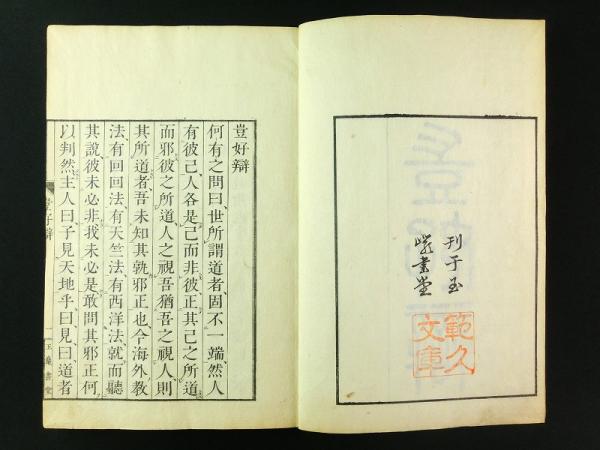 刊于玉
巖書堂
範久
文庫
豈好辯
何有之問曰世所謂道者固不一端然人
有彼己人各是己而非彼正其己之所道
而邪彼之所道人之視吾猶吾之視人則
其所道者吾未知其孰邪正也今海外教
法有回回法有天竺法有西洋法就而聽
其說彼未必非我未必是敢問其邪正何
以判然主人曰子見天地乎曰見曰道者
豈好辯
一
玉巖書堂